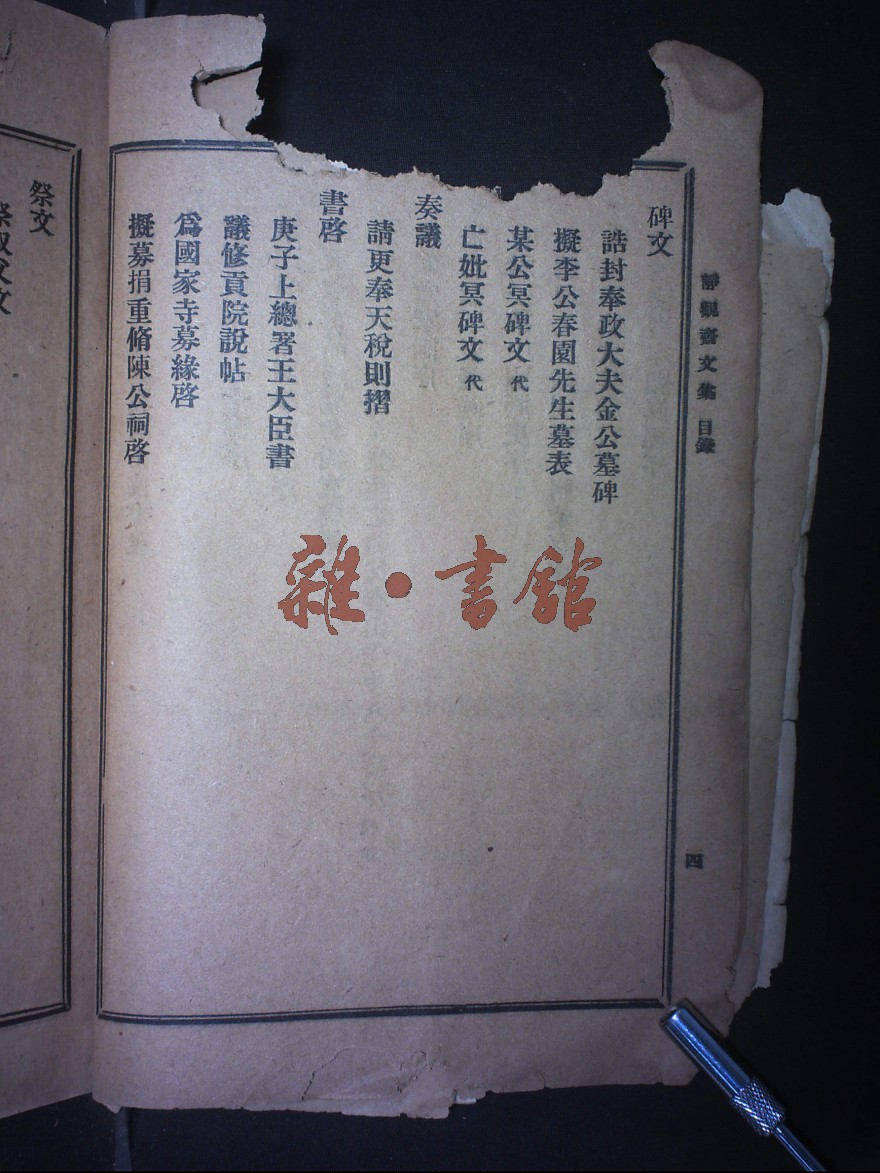 靜觀齋文集 目錄
四
碑文
誥封奉政大夫金公墓碑
擬李公春園先生墓表
某公冥碑文 代
亡妣冥碑文 代
奏議
請更奉天稅則摺
書啓
庚子上總署王大臣書
議修貢院說帖
爲國家寺募緣啓
擬募捐重脩陳公祠啓
祭文
祭叔父文
雜·書館